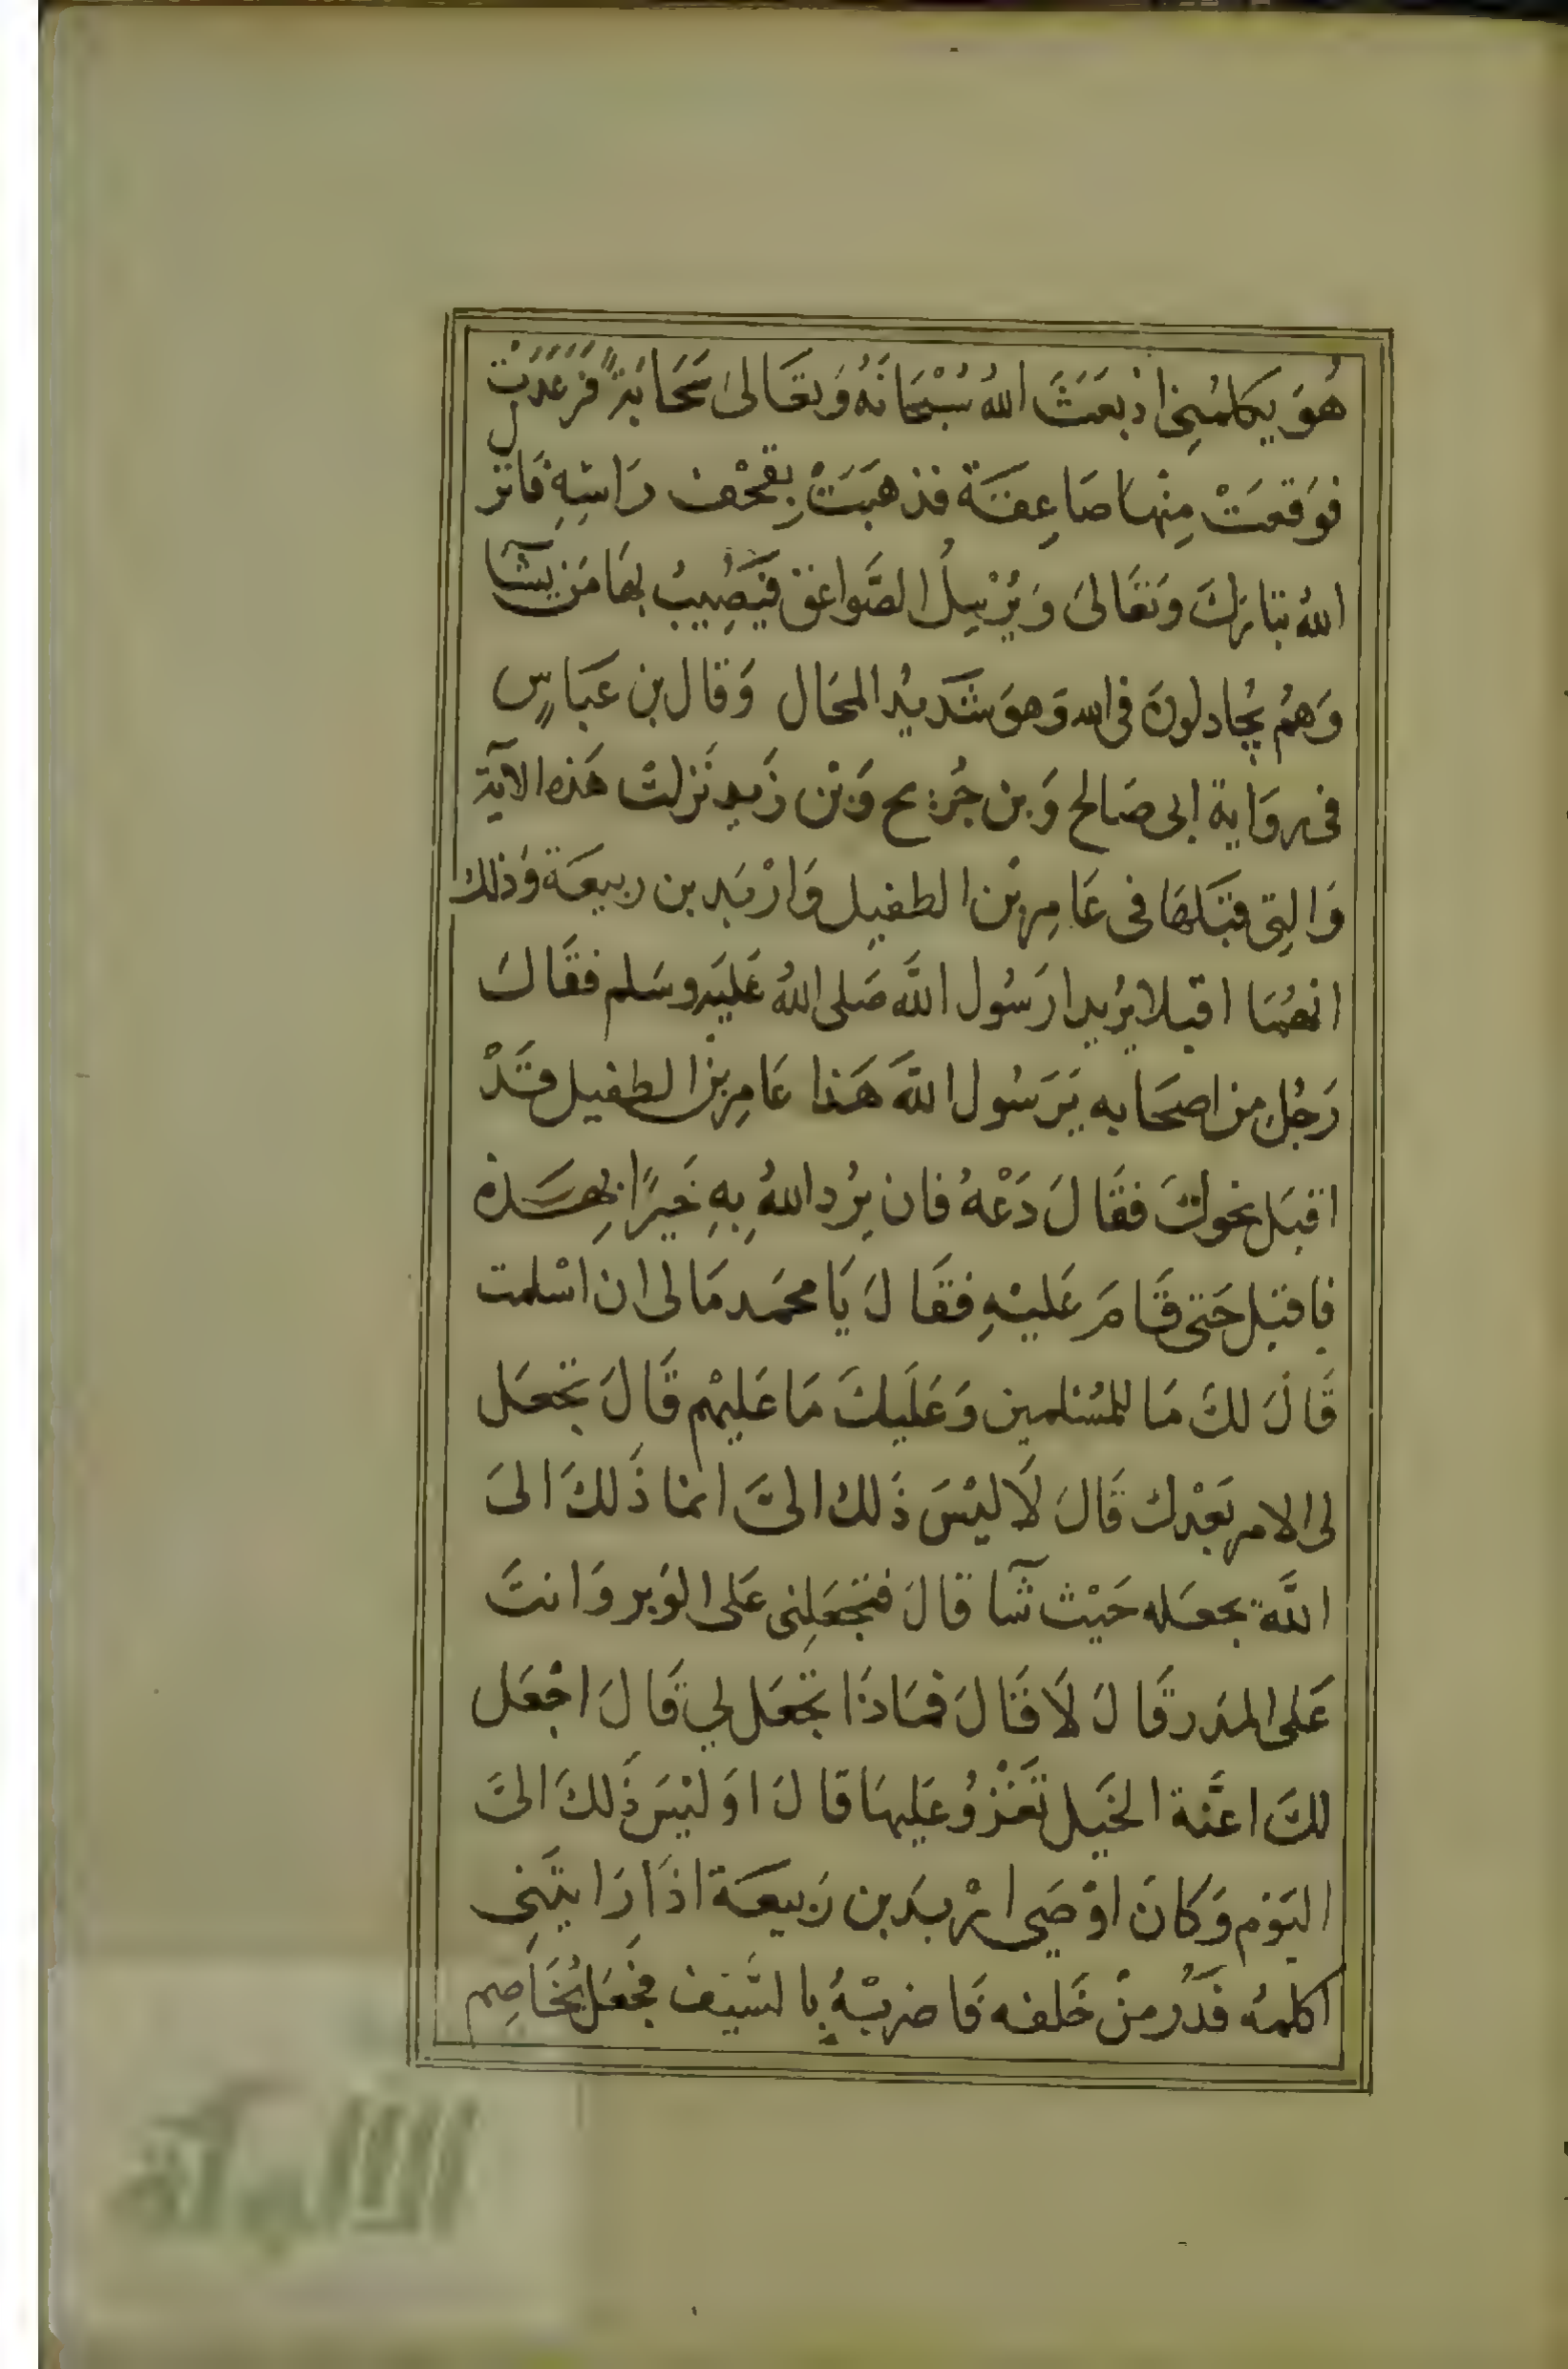 هُوَ يكلمُنِى اذ بَعَثَ اللهُ سُبْحَانَهُ وَتعَالىَ سَحَابَةً فرَعَدَتْ
فوَقعَتْ مِنْهَا صَاعِقَة فذهَبَتْ بِقحْف رَاسِهِ فَانزل
اللهُ تبَارَكَ وَتعَالىَ وَيُرْسِلُ الصَّواعقَ فيَصُِيبُ بهَا مَن يشآ
وَهُم يُجَادلونَ فى الله وَهوَ شَديدُ المحَال وَقال بن عَبَاسٍ
فى روَاية ابى صَالح وَبن جُريح وَبْن زَيدٍ نَزلتْ هَذه الآية
وَالتِى قبَلهَا فى عَامِر بْن الطفيل وَارْبَد بن ربيعَة وَذلك
انهُمَا اقبلا يُريدا رَسُول اللَّه صَلى اللهُ عَليَه وسَلم فقَالَ
رَجُل مِن اصحَابه يَرَسُول اللَّه هَذا عَامِر بْن الطفيل قَدْ
اقبَل نحوكَ فقَالَ دَعْهُ فان يُرد اللهُ بِهِ خَيرًا يهِدَه
فاقبَل حَتى قَامَ عَليْهِ فقَالَ يَا محمَد مَا لى ان اسْلمت
قَالَ لكَ مَا للمُسْلمين وَعَلَيكَ مَا عَليهْم قَالَ تجْعَل
لى الامر بَعْدك قَالَ لَا ليْسَ ذَلك الىَّ انما ذَلكَ الىَ
اللَّه يجعَله حَيْث شآ قالَ فتجْعَلِنى عَلى الوَبر وَانتَ
عَلى المدَر قَالَ لَا قَالَ فمَاذَا تجْعَل لي قَالَ اجْعَل
لكَ اعنَّة الخيَل تَغْزُو عَليهَا قالَ اوَ ليْسَ ذَلكَ الىَّ
اليَوْم وَكانَ اوْصَى ارْبدَ بن رَبيعَة اذَا رَايتَنِى
اكلمُه فدُر مِنْ خَلفه فَاضربْهُ بِالسَّيْف فجَعَل يُخَاصِم